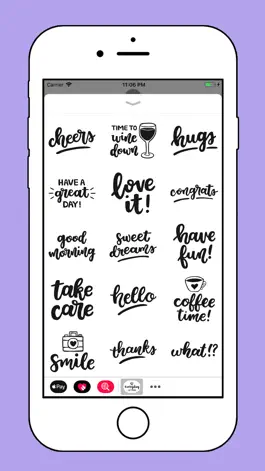 Carrier 11:06 PM
cheers
TIME TO
wine
down
hugs
HAVE A
great
DAY!
love
it!
congrats
good
morning
sweet
dreams
have
fun!
take
care
hello
coffee
time!
Smile
thanks
what!?
Pay
everyday